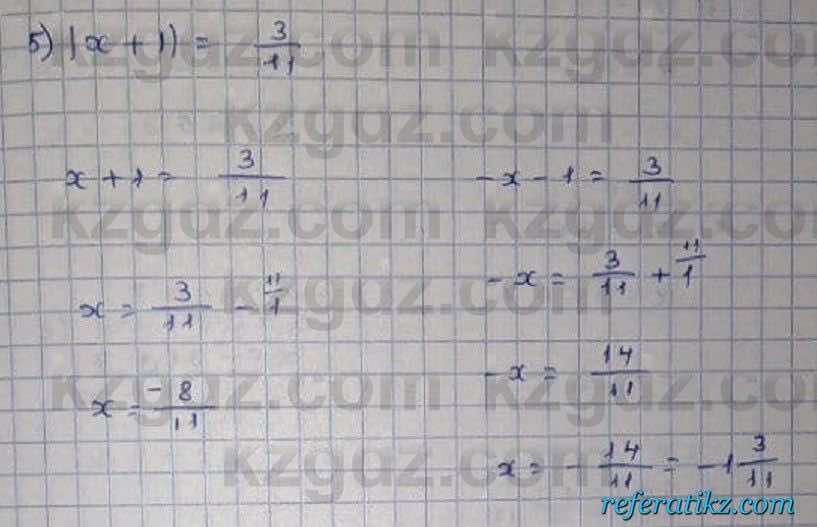 5) |x + 1| = 3/11
kzgdz.com kzgdz.com
kzgdz.com
x + 1 = 3/11
-x - 1 = 3/11
kzgdz.com kzgdz.com
x = 3/11 - 1^11
-x = 3/11 + 1^11
kzgdz.com
x = -8/11
-x = 14/11
kzgdz.com kzgdz.com
x = -14/11 = -1 3/11
kzgdz.com
referatikz.com